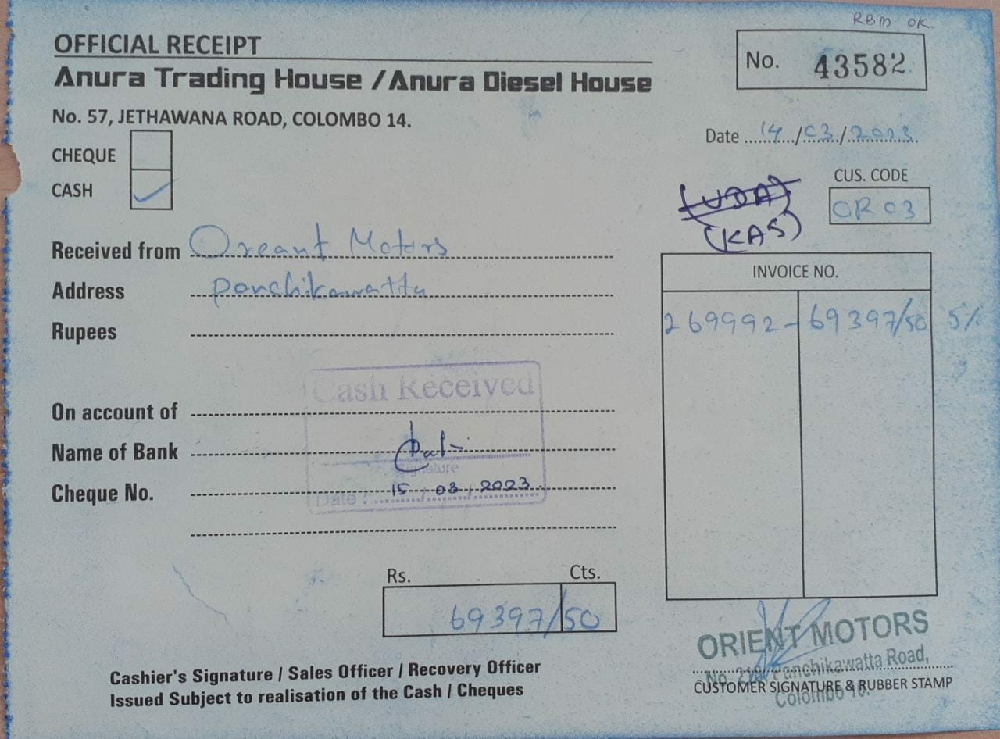 RBM OK.
OFFICIAL RECEIPT
Anura Trading House / Anura Diesel House
No. 43582
No. 57, JETHAWANA ROAD, COLOMBO 14.
Date 14/03/2023
CHEQUE
CASH ✓
CUS. CODE
OR 03
(UDA)
(KAS)
Received from Oreant Motors
Address panchikawatta
Rupees
INVOICE NO.
269992 - 69397/50 5%
Cash Received
On account of
Name of Bank
Signature
Cheque No.
Date: 15 03 2023
Rs. Cts.
69397/50
ORIENT MOTORS
Panchikawatta Road,
Colombo 10.
CUSTOMER SIGNATURE & RUBBER STAMP
Cashier's Signature / Sales Officer / Recovery Officer
Issued Subject to realisation of the Cash / Cheques